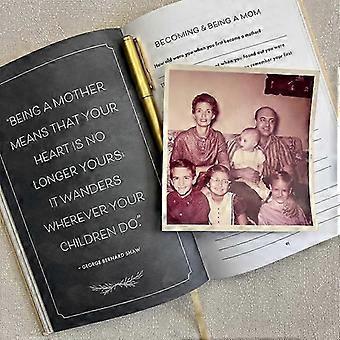 "BEING A MOTHER
MEANS THAT YOUR
HEART IS NO
LONGER YOURS;
IT WANDERS
WHEREVER YOUR
CHILDREN DO."
- GEORGE BERNARD SHAW
BECOMING & BEING A MOM
How old were you when you first become a mother?
when you found out you were
your first?